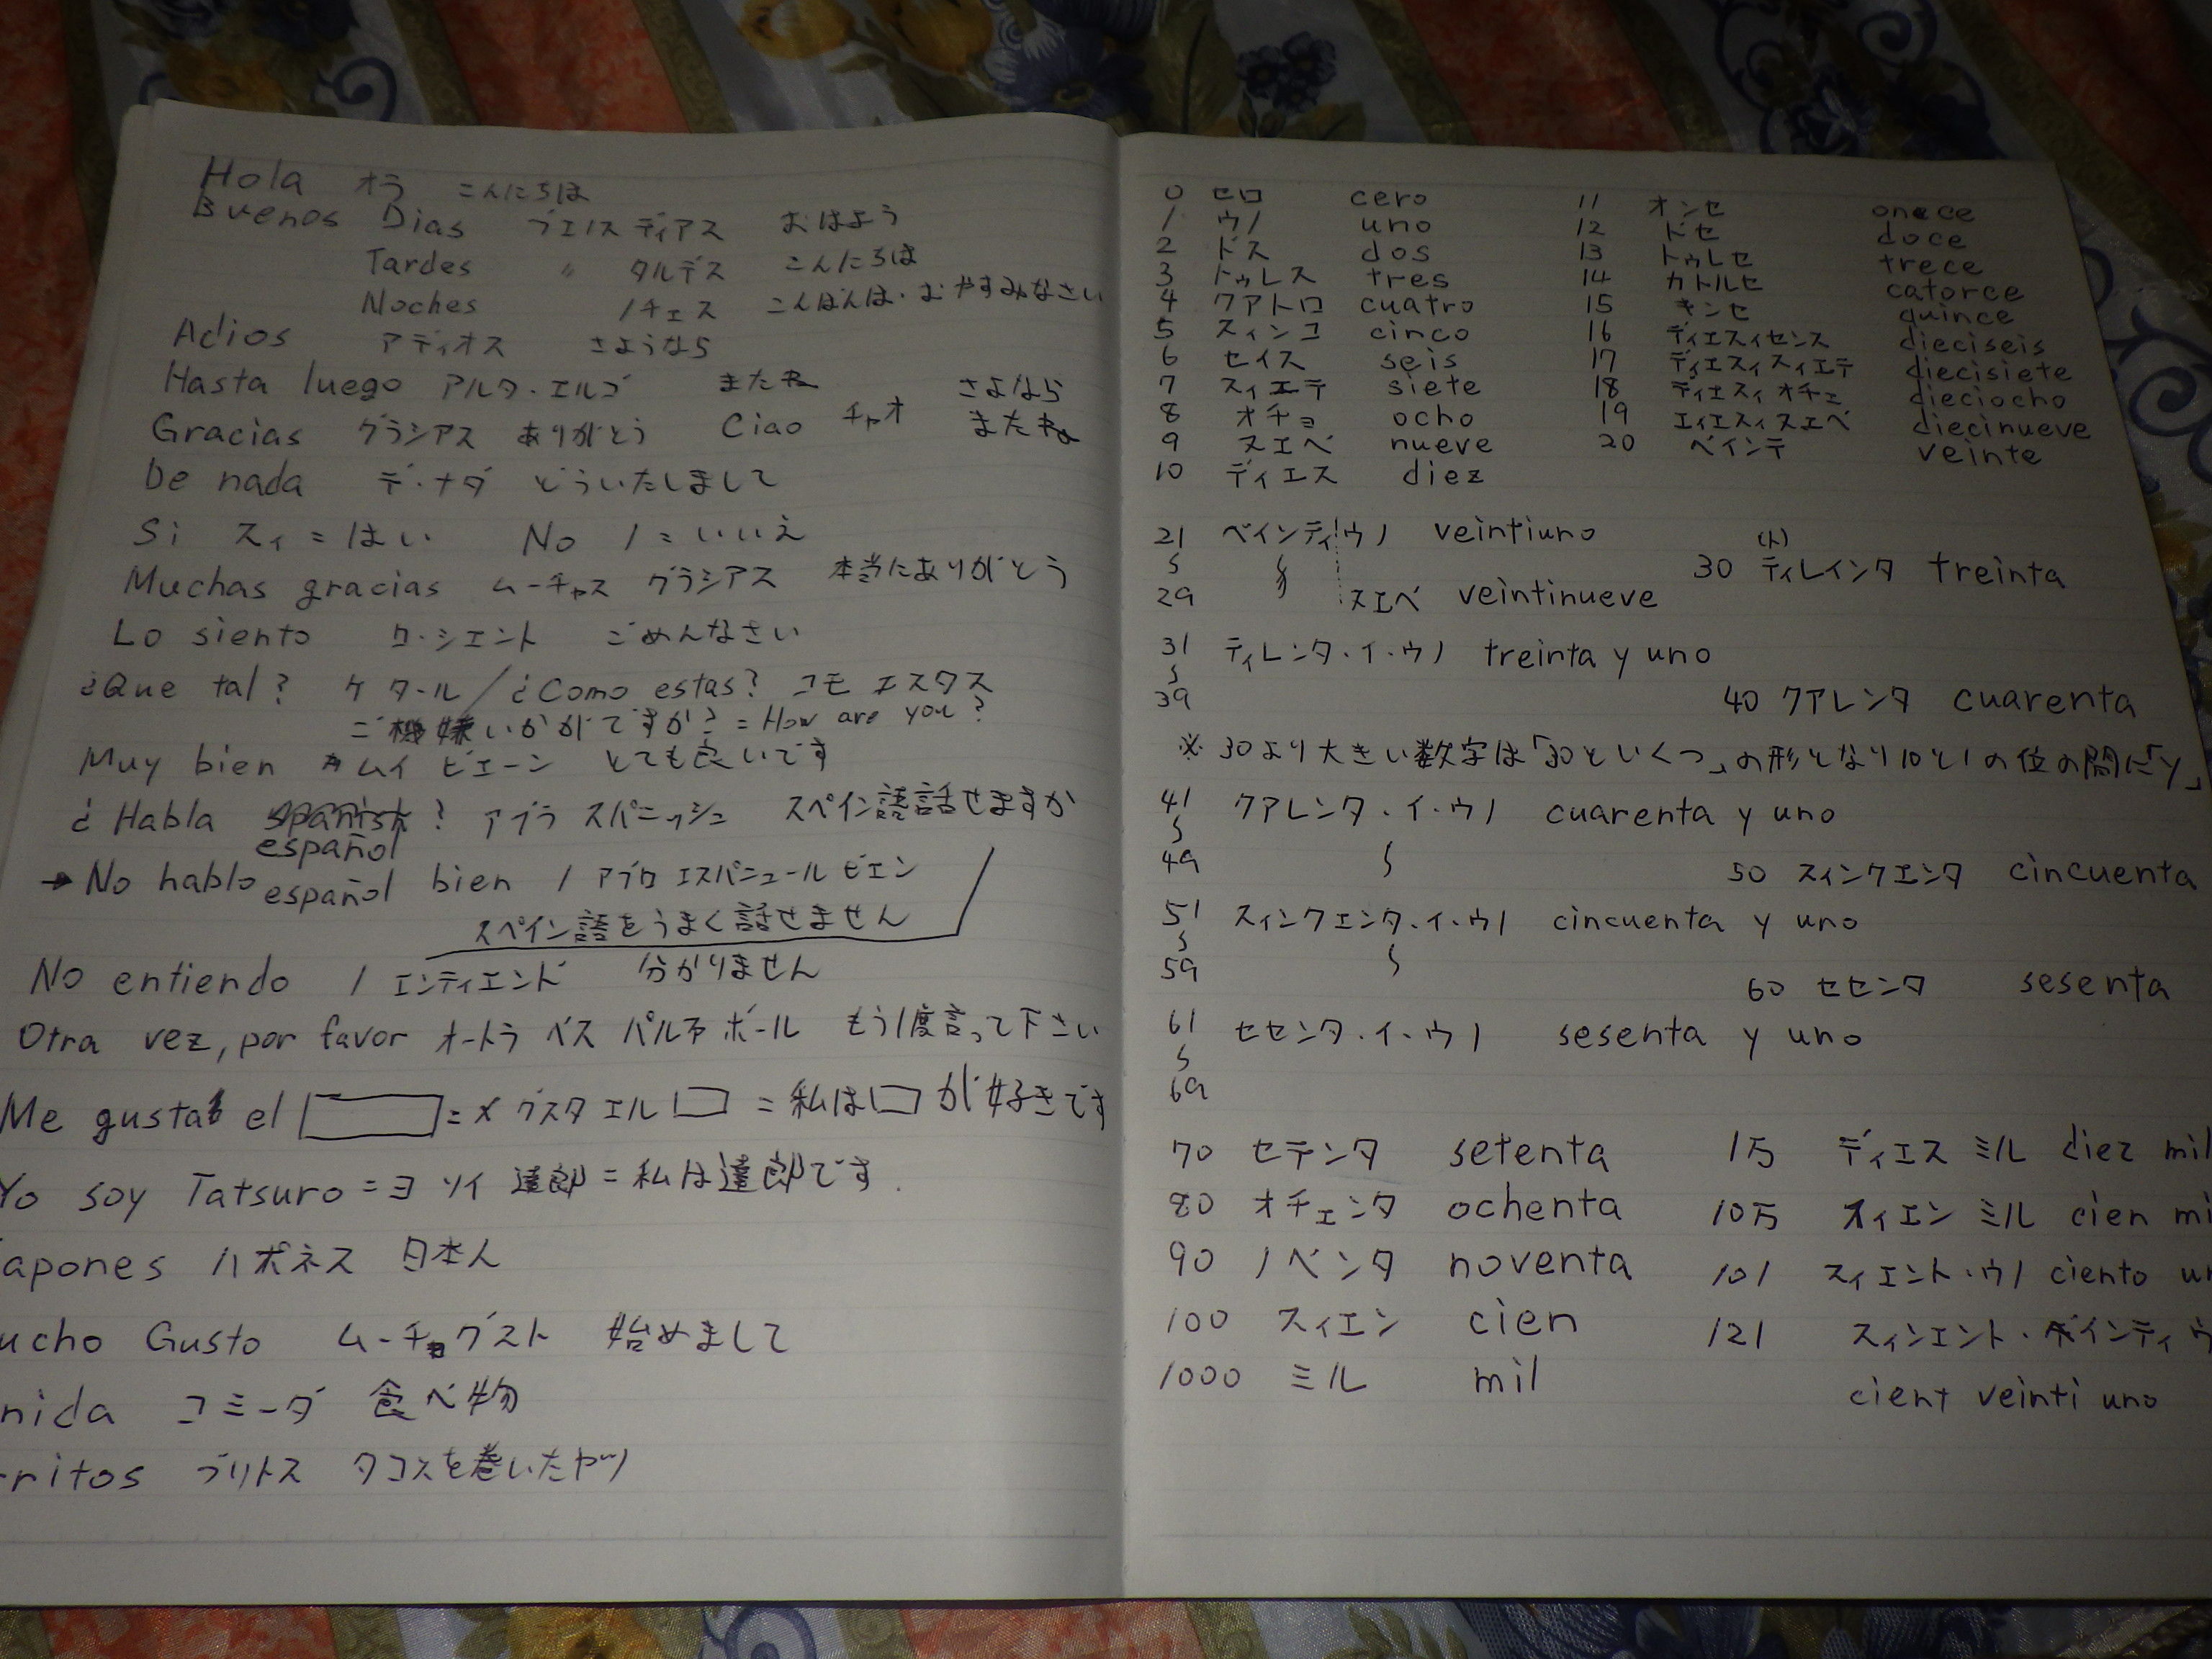 Hola オラ こんにちは
Buenos Dias ブエノス ディアス おはよう
Tardes 〃 タルデス こんにちは
Noches ノチェス こんばんは・おやすみなさい
Adios アディオス さようなら
Hasta luego アルタ・エルゴ またね さよなら
Gracias グラシアス ありがとう Ciao チャオ またね
De nada デ・ナダ どういたしまして
Si スィ = はい No ノ = いいえ
Muchas gracias ムーチャス グラシアス 本当にありがとう
Lo siento ロ・シエント ごめんなさい
¿Que tal? ケ タール / ¿Como estas? コモ エスタス
ご機嫌いかがですか? = How are you?
Muy bien ムイ ビエーン とても良いです
¿Habla spanish? アブラ スパニッシュ スペイン語話せますか
español
→ No hablo español bien ノ アブロ エスパニュール ビエン
スペイン語をうまく話せません
No entiendo ノ エンティエンド 分かりません
Otra vez, por favor オートラ ベス パルファ ボール もう1度言って下さい
Me gusta el □ = メ グスタ エル □ = 私は□が好きです
Yo soy Tatsuro = ヨ ソイ 達郎 = 私は達郎です.
apones ハポネス 日本人
ucho Gusto ムーチョグスト 始めまして
nida コミーダ 食べ物
rritos ブリトス タコスを巻いたヤツ
0 セロ cero 11 オンセ once
1 ウノ uno 12 ドセ doce
2 ドス dos 13 トゥレセ trece
3 トゥレス tres 14 カトルセ catorce
4 クアトロ cuatro 15 キンセ quince
5 スィンコ cinco 16 ディエスィセンス dieciseis
6 セイス seis 17 ディエスィスィエテ diecisiete
7 スィエテ siete 18 ディエスィオチェ dieciocho
8 オチョ ocho 19 エィエスィスエベ diecinueve
9 ヌエベ nueve 20 ベインテ veinte
10 ディエス diez
21 ベインティウノ veintiuno
30 ティレインタ (ト) treinta
29 ヌエベ veintinueve
31 ティレンタ・イ・ウノ treinta y uno
39
40 クアレンタ cuarenta
※ 30より大きい数字は「30といくつ」の形となり10と1の位の間に「y」
41 クアレンタ・イ・ウノ cuarenta y uno
49
50 スィンクエンタ cincuenta
51 スィンクエンタ・イ・ウノ cincuenta y uno
59
60 セセンタ sesenta
61 セセンタ・イ・ウノ sesenta y uno
69
70 セテンタ setenta 1万 ディエス ミル diez mil
80 オチェンタ ochenta 10万 スィエン ミル cien mi
90 ノベンタ noventa 101 スィエント・ウノ ciento un
100 スィエン cien 121 スィンエント・ベインティウ
1000 ミル mil cient veinti uno